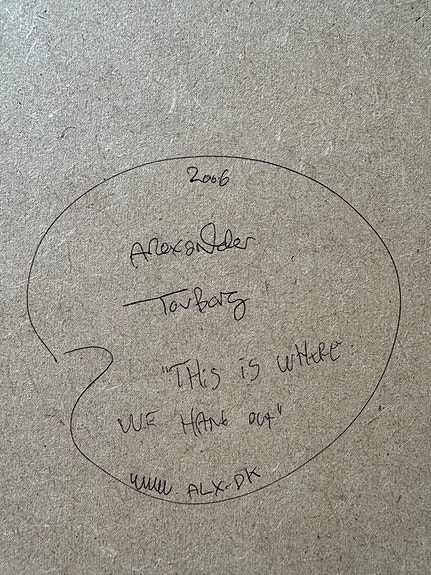 2006
Alexander
Tovborg
"THIS IS WHERE
WE HANG OUT"
www ALX-DK